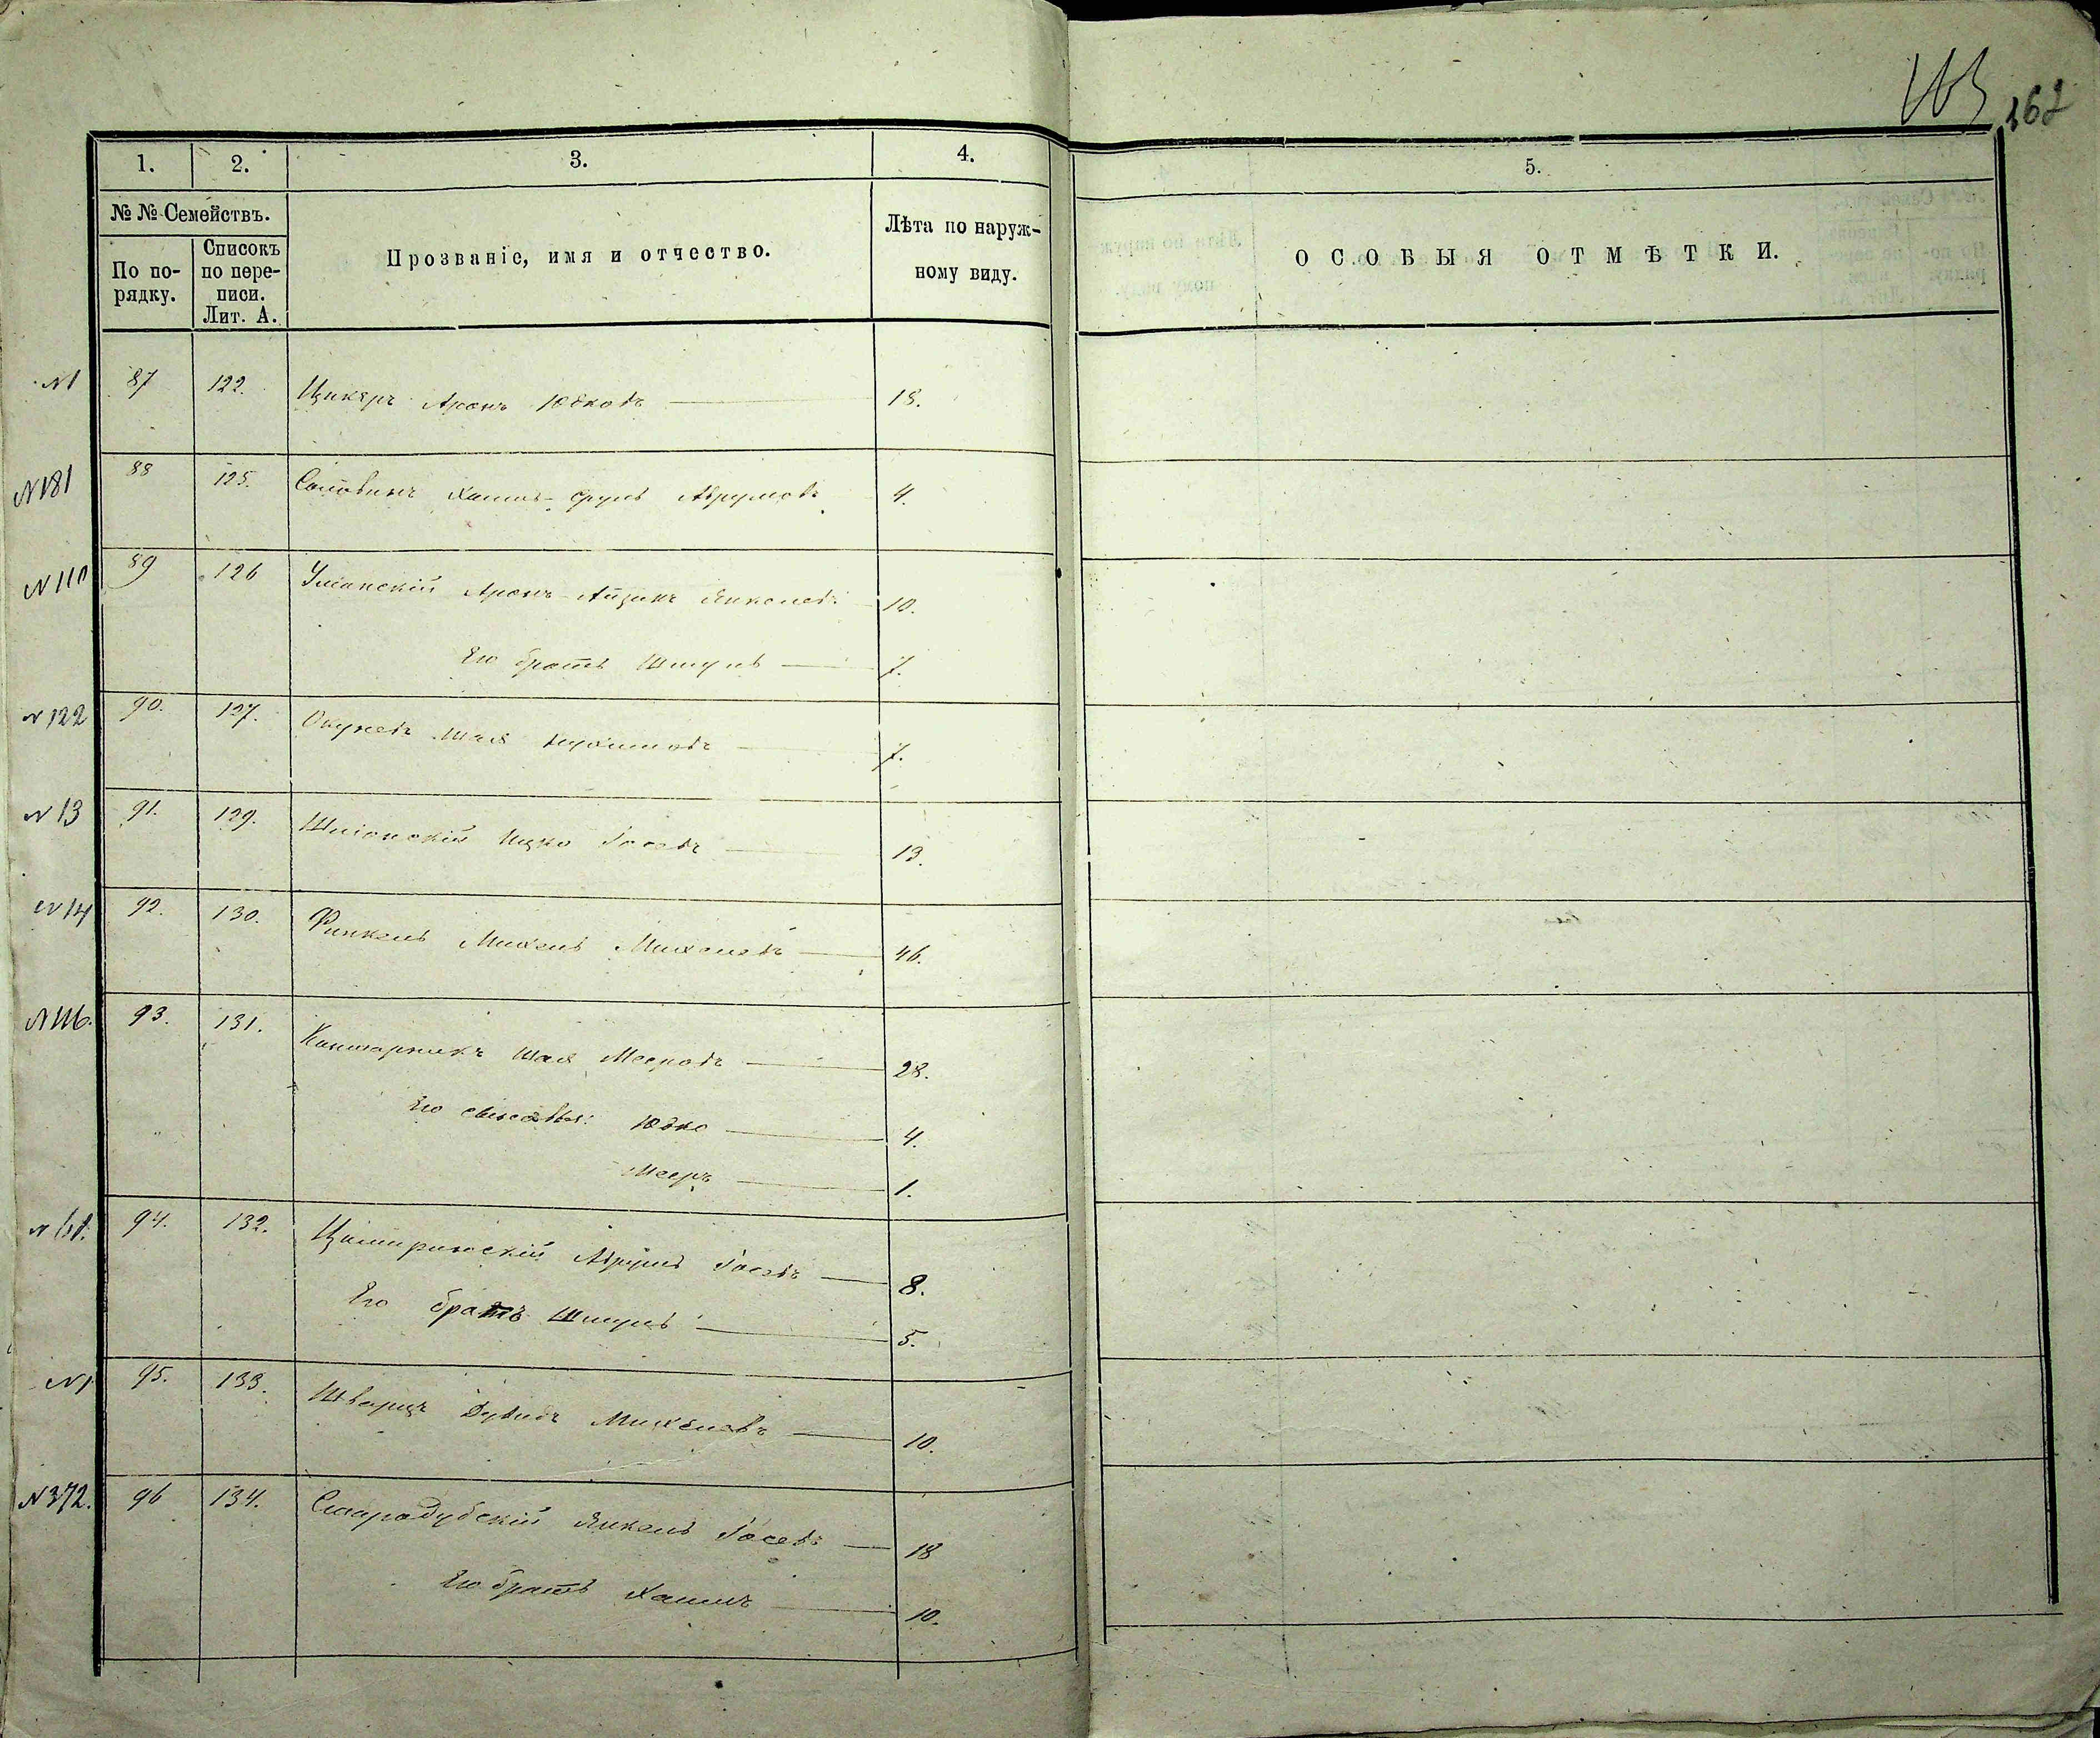 163 162
1. 2. 3. 4. 5.
№ № Семействъ.
По по-
рядку.
Списокъ
по пере-
писи.
Лит. А.
Прозваніе, имя и отчество.
Лѣта по наруж-
ному виду.
ОСОБЫЯ ОТМѢТКИ.
N1 87 122. Цукеръ Аронъ Юдковъ 18.
N181 88 125. Хаимъ-Сруль Аврумовъ 4.
N110 89 126 Уманскій Аронъ-Айзикъ Янкелевъ 10.
Его братъ Шмуль 7.
N122 90. 127. Окуневъ Шая Нухимовъ 7.
N13 91. 129. Ицко Іосевъ 13.
N14 92. 130. Финкель Михель Михелевъ 46.
N116. 93. 131. Шая Мееровъ 28.
Его сыновья: Юдко 4.
Мееръ 1.
N61. 94. 132. Аврумъ Іосевъ 8.
Его братъ Шмуль 5.
N1 95. 133. Шварцъ Дувидъ Михелевъ 10.
N372. 96 134. Стародубскій Янкель Іосевъ 18
Его братъ Хаимъ 10.